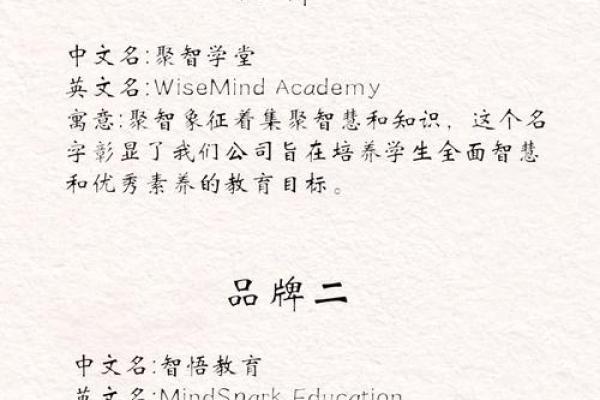 中文名:聚智学堂
英文名:WiseMind Academy
寓意:聚智象征着集聚智慧和知识，这个名
字彰显了我们公司旨在培养学生全面智慧
和优秀素养的教育目标。
品牌二
中文名:智悟教育
英文名:MindSpark Education